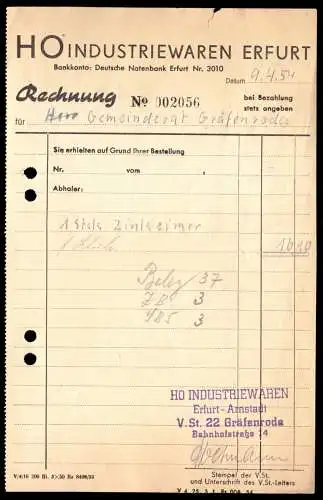 HO INDUSTRIEWAREN ERFURT
Bankkonto: Deutsche Notenbank Erfurt Nr. 3010
Datum 9.4.54
Rechnung No 002056 bei Bezahlung stets angeben
für Herr Gemeinderat Gräfenroda
Sie erhielten auf Grund Ihrer Bestellung
Nr. vom ,
Abholer:
1 Zinkeimer
1010
Beleg 37
3
3
HO INDUSTRIEWAREN
Erfurt-Arnstadt
V.St. 22 Gräfenroda
Bahnhofstraße 14
Stempel der V.St.
und Unterschrift des V.St.-Leiters